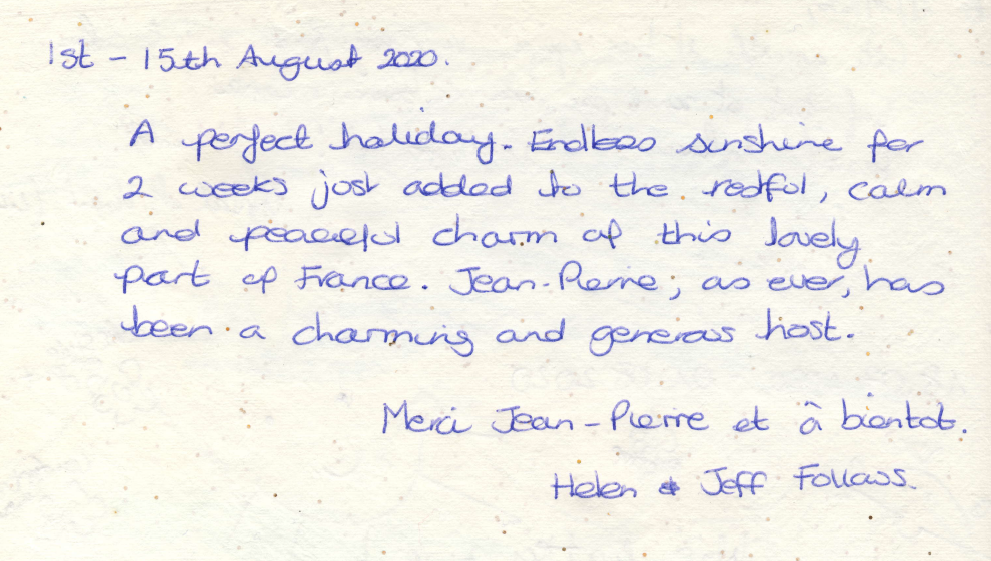 1st - 15th August 2020.
A perfect holiday. Endless sunshine for
2 weeks just added to the restful, calm
and peaceful charm of this lovely
part of France. Jean-Pierre, as ever, has
been a charming and generous host.
Merci Jean-Pierre et â bientot.
Helen & Jeff Follows.